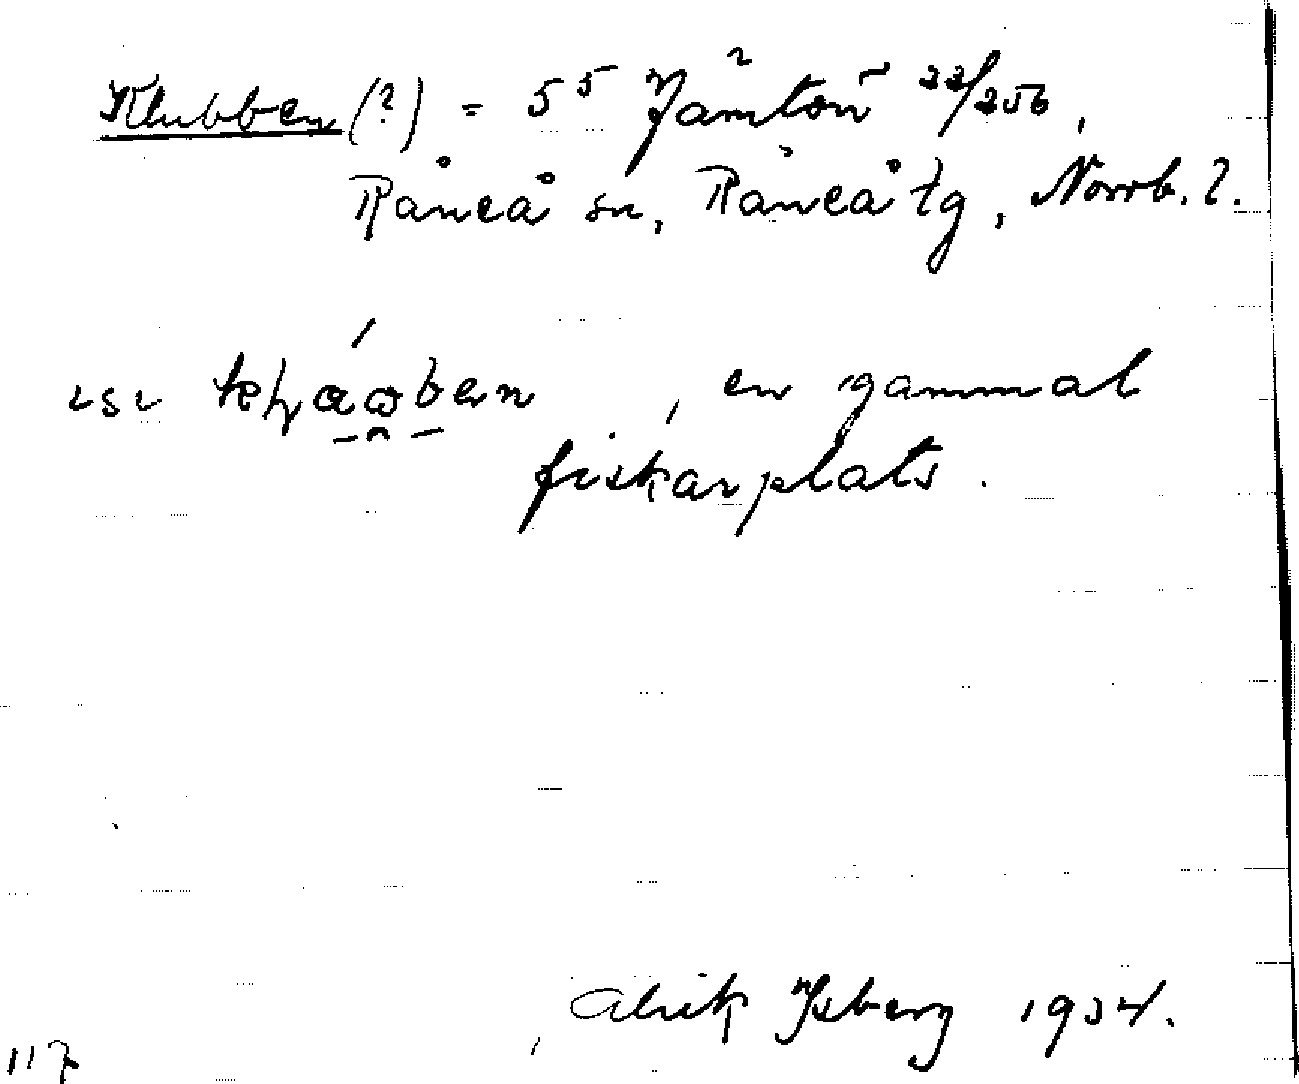 Klubben (?) = 5⁵ Jämtön 22/256,
Råneå sn, Råneå tg, Norrb. l.
, en gammal
fiskarplats.
Alrik Ysberg 1934.
117